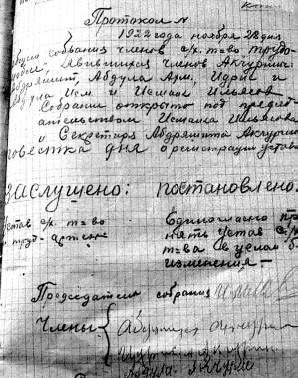 Протокол №
1922 года ноября 28 дня
собрания членов с/х. т-во трудо-
явившихся членов Акчурин
Абдрашит, Абдула Арм. Идри и
Исм и Исмаил Ильясов
Собрание открыто под председ-
ательством Исмаила Ильясова
и Секретаря Абдрашита Акчурин
повестка дня о регистрации устава
Заслушено: постановлено:
Устав с/х. т-во
Единогласно при-
нять Устав с/х
т-ва в целом б
изменения
Председатель собрания
Члены
Абдрашит Акчурин
Абдула. Акчурин